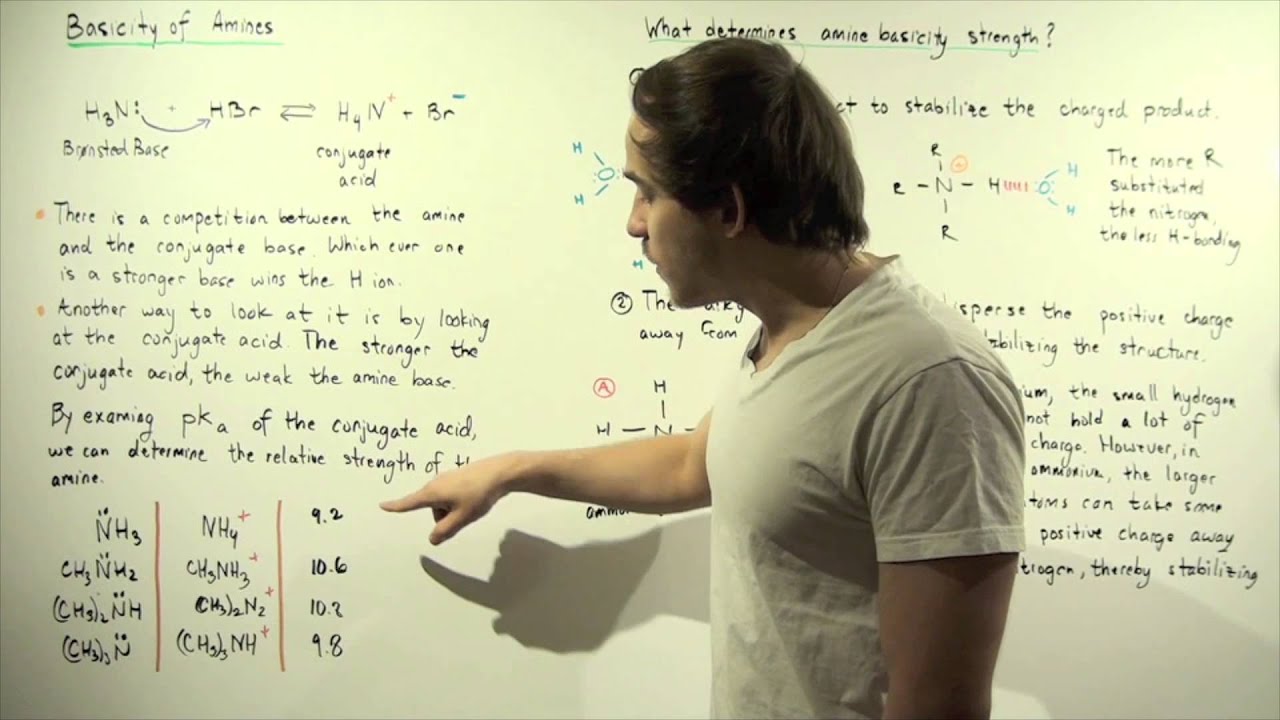 Basicity of Amines
H₃N: + HBr ⇌ H₄N⁺ + Br⁻
Brønsted Base
conjugate
acid
There is a competition between the amine
and the conjugate base. Which ever one
is a stronger base wins the H ion.
Another way to look at it is by looking
at the conjugate acid. The stronger the
conjugate acid, the weak the amine base.
By examing pKa of the conjugate acid,
we can determine the relative strength of
amine.
N̈H₃ NH₄⁺ 9.2
CH₃N̈H₂ CH₃NH₃⁺ 10.6
(CH₃)₂N̈H (CH₃)₂N₂⁺
(CH₃)₃N̈ (CH₃)₃NH⁺ 9.8
What determines amine basicity strength?
to stabilize the charged product.
H
O
H
H
R
R - N - H O
R
+
H
H
The more R
substituted
the nitrogen,
the less H-bonding
② The
away from
disperse the positive charge
the structure.
A
H
H - N
the small hydrogen
not hold a lot of
charge. However, in
ammonium, the larger
can take some
positive charge away
thereby stabilizing